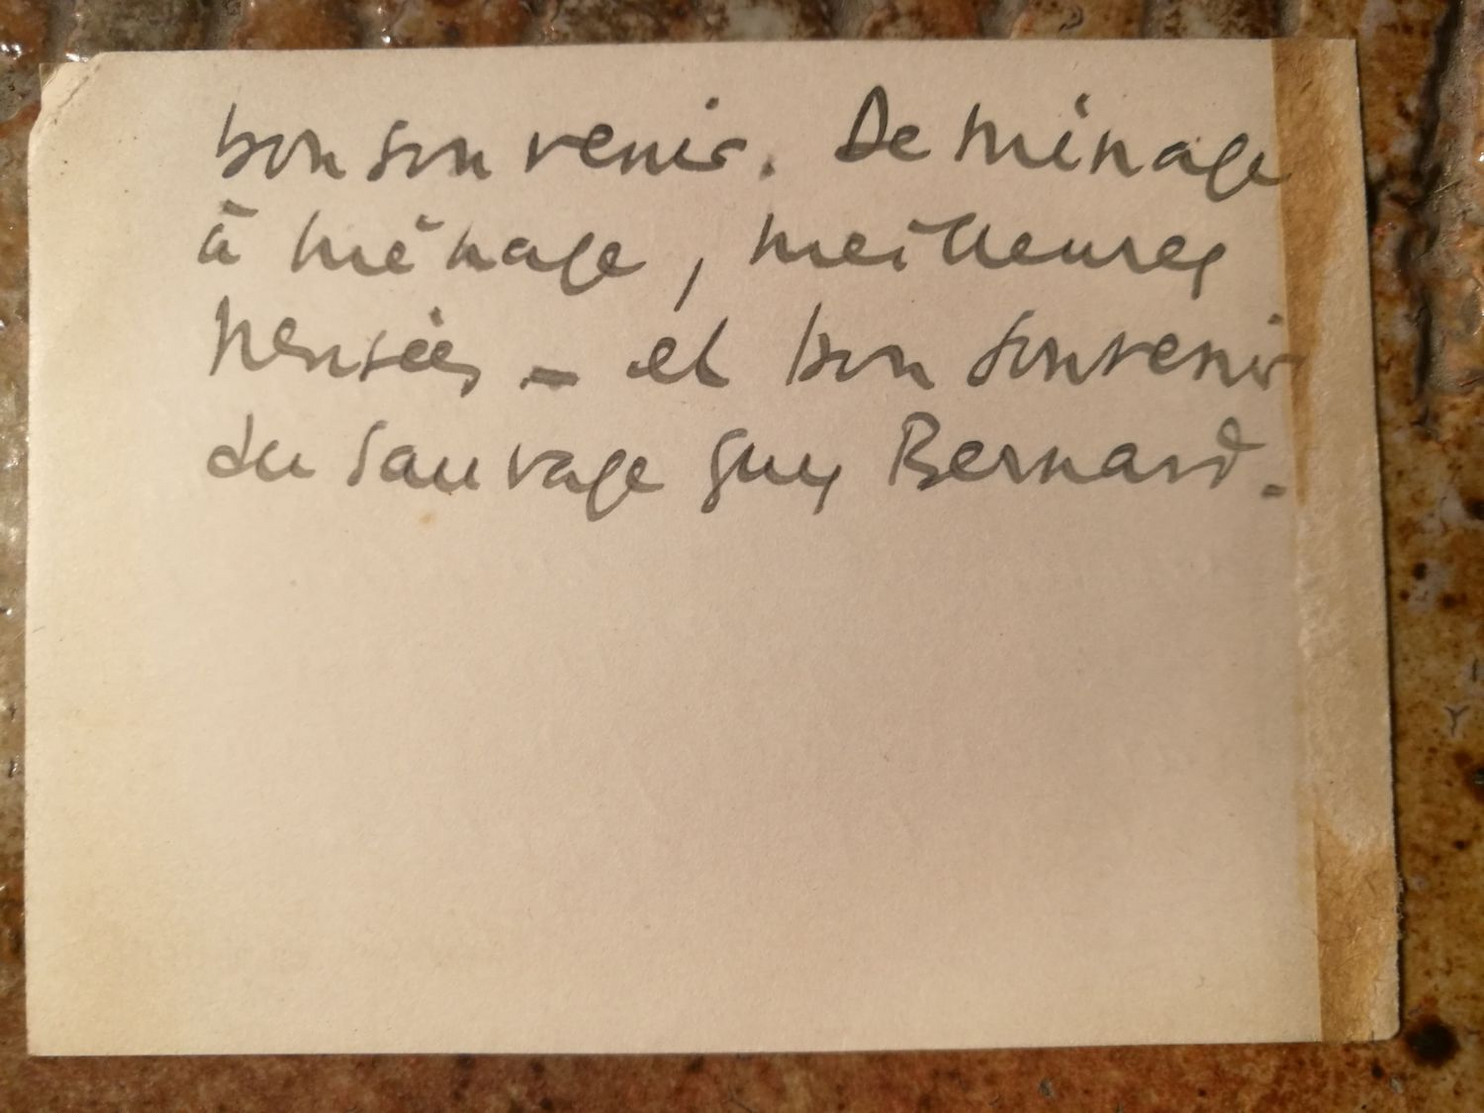 bon souvenir. De ménage
à ménage, meilleures
pensées - et bon souvenir
du sauvage Guy Bernard.